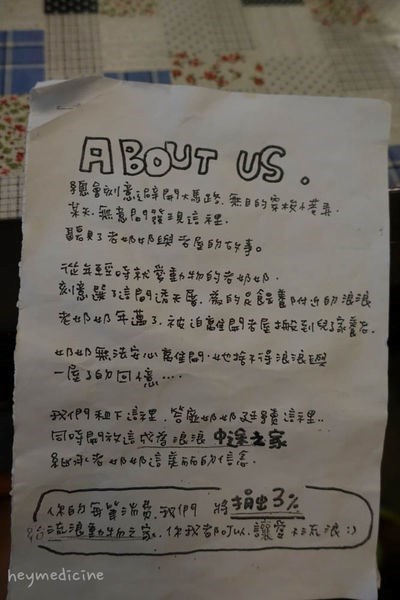 ABOUT US.
總會刻意避開大馬路,無目的穿梭小巷弄.
某天,無意間發現這裡.
聽見了老奶奶與老屋的故事。
從年輕時就愛動物的老奶奶.
刻意選了這間透天厝.為的是餵養附近的浪浪
老奶奶年邁了.被迫離開老屋搬到兒子家養老.
奶奶無法安心離開.也捨不得浪浪與
一屋子的回憶....
我們租下這裡.答應奶奶延續這裡..
同時開放這成為浪浪 中途之家
繼承老奶奶這美麗的信念.
你的每筆消費,我們 將捐出3%
給流浪動物之家.你我都可以.讓愛不流浪:)
heymedicine